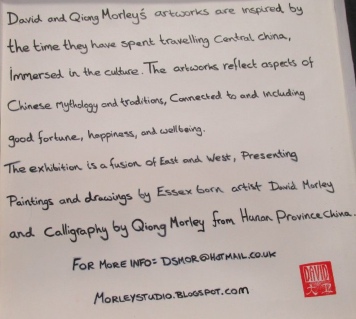 David and Qiong Morley's artworks are inspired by
the time they have spent travelling Central china,
immersed in the culture. The artworks reflect aspects of
Chinese mythology and traditions, Connected to and including
good fortune, happiness, and wellbeing.
The exhibition is a fusion of East and West, Presenting
Paintings and drawings by Essex born artist David Morley
and Calligraphy by Qiong Morley from Hunan Province China.
FOR MORE INFO: DSMOR@HOTMAIL.CO.UK
MORLEYSTUDIO.BLOGSPOT.COM
DAVID
大卫